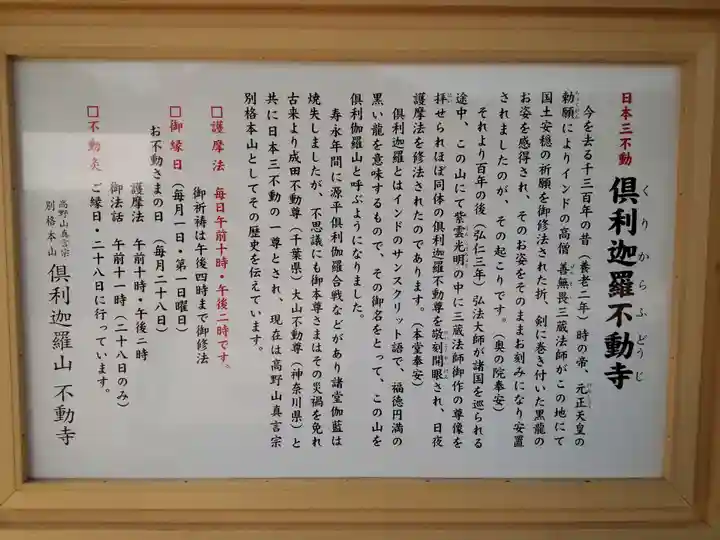 日本三不動
倶利迦羅不動寺
くりからふどうじ
今を去る千三百年の昔（養老二年）時の帝、元正天皇の
勅願によりインドの高僧 善無畏三蔵法師がこの地にて
国土安穏の祈願を御修法された折、剣に巻き付いた黒龍の
お姿を感得され、そのお姿をそのままお刻みになり安置
されましたのが、その起こりです。（奥の院奉安）
それより百年の後（弘仁三年）弘法大師が諸国を巡られる
途中、この山にて紫雲光明の中に三蔵法師御作の尊像を
拝せられほぼ同体の倶利迦羅不動尊を敬刻開眼され、日夜
護摩法を修法されたのであります。（本堂奉安）
倶利迦羅とはインドのサンスクリット語で、福徳円満の
黒い龍を意味するもので、その御名をとって、この山を
倶利迦羅山と呼ぶようになりました。
寿永年間に源平倶利伽羅合戦などがあり諸堂伽藍は
焼失しましたが、不思議にも御本尊さまはその災禍を免れ
古来より成田不動尊（千葉県）大山不動尊（神奈川県）と
共に日本三不動の一尊とされ、現在は高野山真言宗
別格本山としてその歴史を伝えています。
□護摩法 毎日午前十時・午後二時です。
御祈祷は午後四時まで御修法
□御縁日（毎月一日・第一日曜日）
お不動さまの日（毎月二十八日）
護摩法 午前十時・午後二時
御法話 午前十一時（二十八日のみ）
□不動灸 ご縁日・二十八日に行っています。
高野山真言宗
別格本山 倶利迦羅山 不動寺